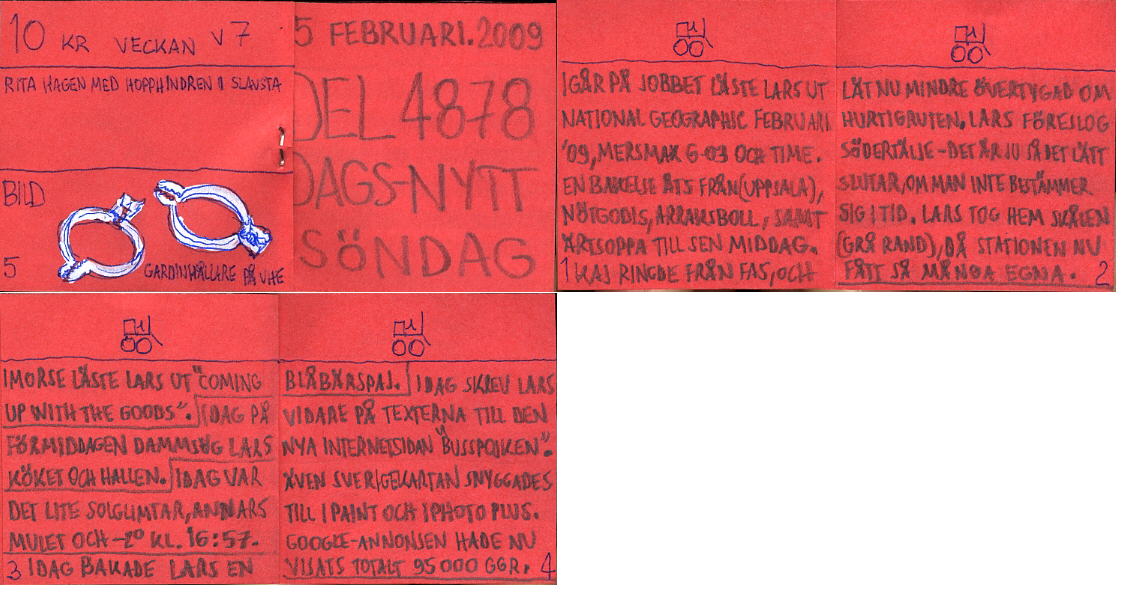 10 KR VECKAN V7
RITA HAGEN MED HOPPHINDREN I SLAVSTA
BILD
5
GARDINHÅLLARE PÅ VHE
5 FEBRUARI.2009
DEL 4878
DAGS-NYTT
SÖNDAG
IGÅR PÅ JOBBET LÄSTE LARS UT
NATIONAL GEOGRAPHIC FEBRUARI
'09, MERSMAX 6-09 OCH TIME.
EN BAKELSE ÅTS FRÅN (UPPSALA),
NÖTGODIS, ARRAKSBOLL, SAMT
ÄRTSOPPA TILL SEN MIDDAG.
1 KAJ RINGDE FRÅN FAS, OCH
LÄT NU MINDRE ÖVERTYGAD OM
HURTIGRUTEN. LARS FÖRESLOG
SÖDERTÄLJE - DET ÄR JU SÅ DET LÄTT
SLUTAR, OM MAN INTE BESTÄMMER
SIG I TID. LARS TOG HEM SKÅLEN
(GRÅ RAND), DÅ STATIONEN NU
FÅTT SÅ MÅNGA EGNA. 2
IMORSE LÄSTE LARS UT "COMING
UP WITH THE GOODS". IDAG PÅ
FÖRMIDDAGEN DAMMSÖG LARS
KÖKET OCH HALLEN. IDAG VAR
DET LITE SOLGLIMTAR, ANNARS
MULET OCH -2° KL. 16:57.
3 IDAG BAKADE LARS EN
BLÅBÄRSPAJ. IDAG SKREV LARS
VIDARE PÅ TEXTERNA TILL DEN
NYA INTERNETSIDAN "BUSSPOJKEN".
ÄVEN SVERIGEKARTAN SNYGGADES
TILL I PAINT OCH IPHOTO PLUS.
GOOGLE-ANNONSEN HADE NU
VISATS TOTALT 95 000 GGR. 4